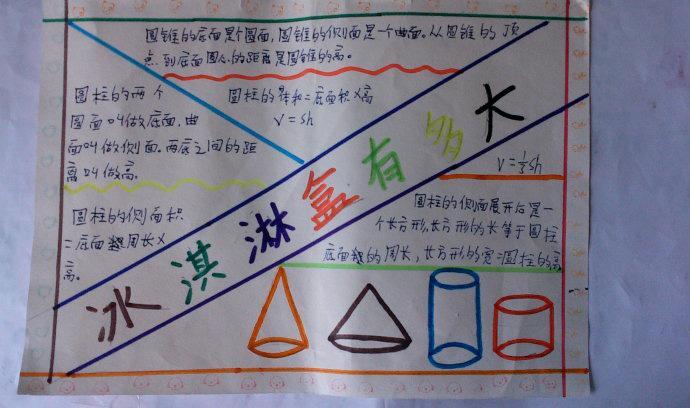 圆锥的底面是个圆面,圆锥的侧面是一个曲面。从圆锥的顶
点到底面圆心的距离是圆锥的高。
圆柱的两个
圆面叫做底面,曲
面叫做侧面。两底之间的距
离叫做高。
圆柱的体积=底面积×高
V=sh
圆柱的侧面积
=底面 周长×
高。
冰淇淋盒有多大
V=⅓sh
圆柱的侧面展开后是一
个长方形,长方形的长等于圆柱
底面 的周长,长方形的宽 圆柱的高